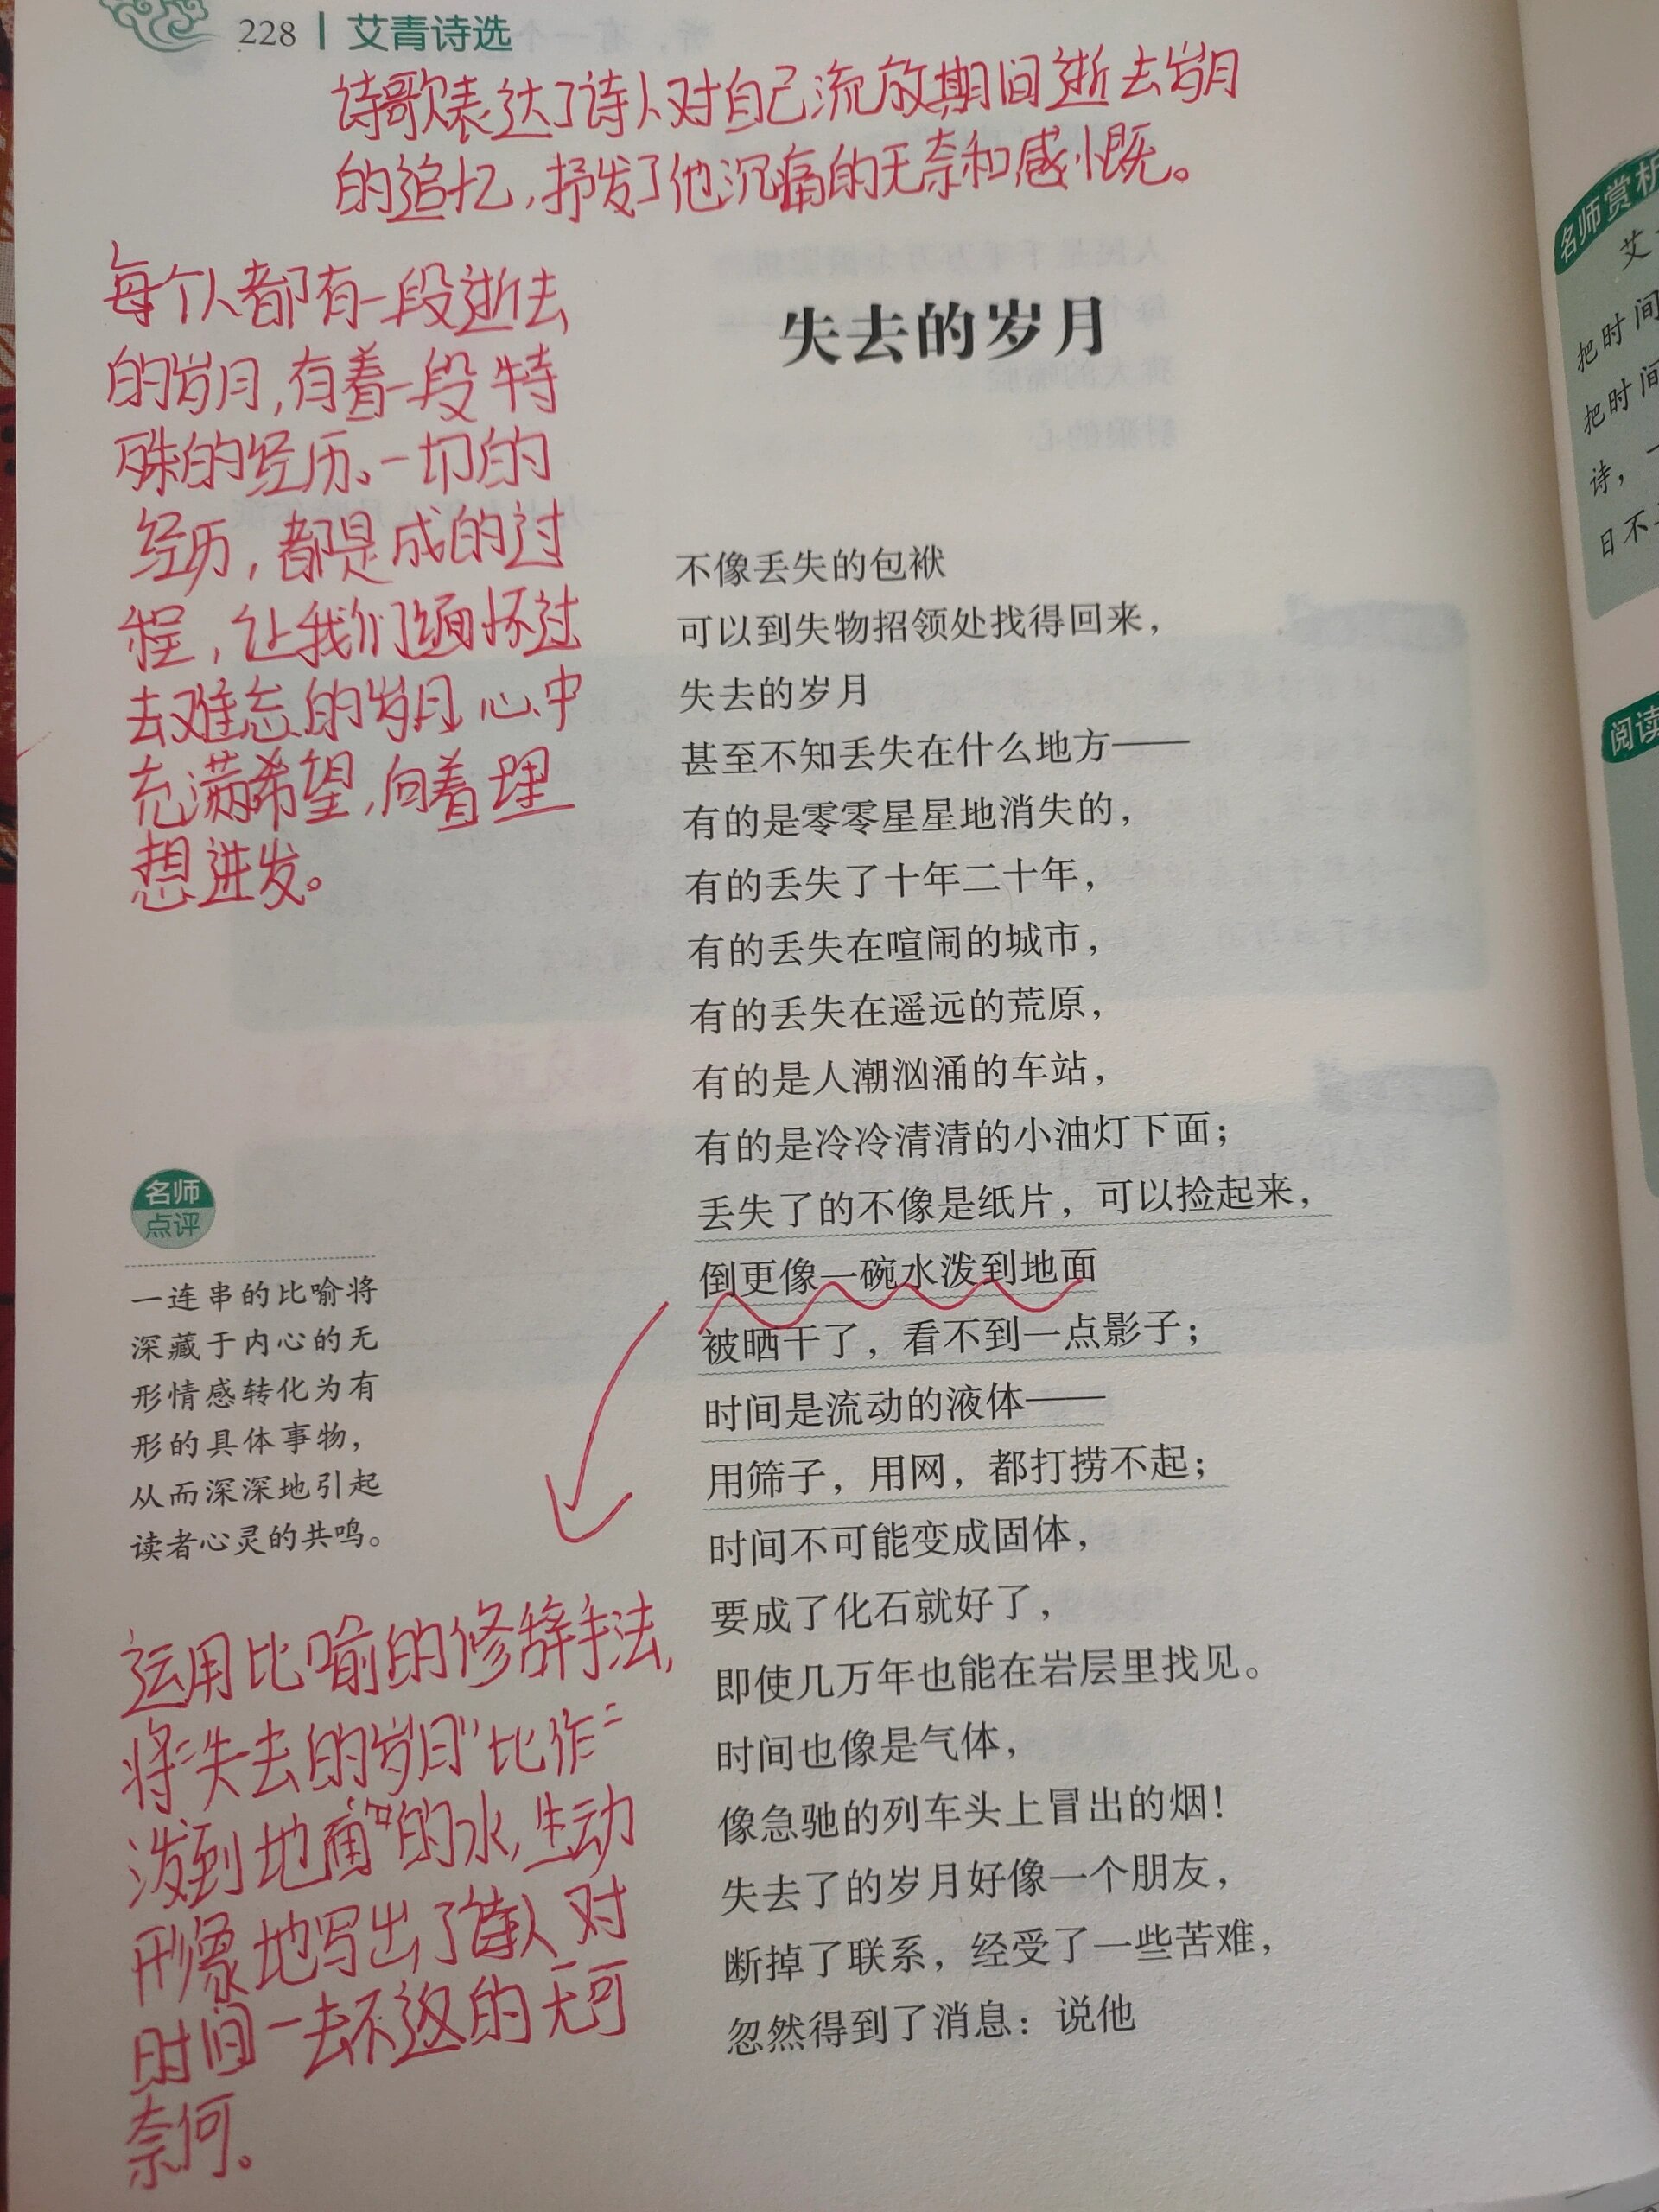 228 | 艾青诗选
诗歌表达了诗人对自己流放期间逝去岁月
的追忆，抒发了他沉痛的无奈和感慨。
每个人都有一段逝去
的岁月，有着一段特
殊的经历。一切的
经历，都是成的过
程，让我们缅怀过
去难忘的岁月，心中
充满希望，向着理
想进发。
失去的岁月
不像丢失的包袱
可以到失物招领处找得回来，
失去的岁月
甚至不知丢失在什么地方——
有的是零零星星地消失的，
有的丢失了十年二十年，
有的丢失在喧闹的城市，
有的丢失在遥远的荒原，
有的是人潮汹涌的车站，
有的是冷冷清清的小油灯下面；
丢失了的不像是纸片，可以捡起来，
倒更像一碗水泼到地面
被晒干了，看不到一点影子；
时间是流动的液体——
用筛子，用网，都打捞不起；
时间不可能变成固体，
要成了化石就好了，
即使几万年也能在岩层里找见。
时间也像是气体，
像急驰的列车头上冒出的烟！
失去了的岁月好像一个朋友，
断掉了联系，经受了一些苦难，
忽然得到了消息：说他
名师
点评
一连串的比喻将
深藏于内心的无
形情感转化为有
形的具体事物，
从而深深地引起
读者心灵的共鸣。
运用比喻的修辞手法，
将“失去的岁月”比作“
泼到地面”的水，生动
形象地写出了诗人对
时间一去不返的无可
奈何。
名师赏析
艾
把时间
把时间
诗，一
日不
阅读